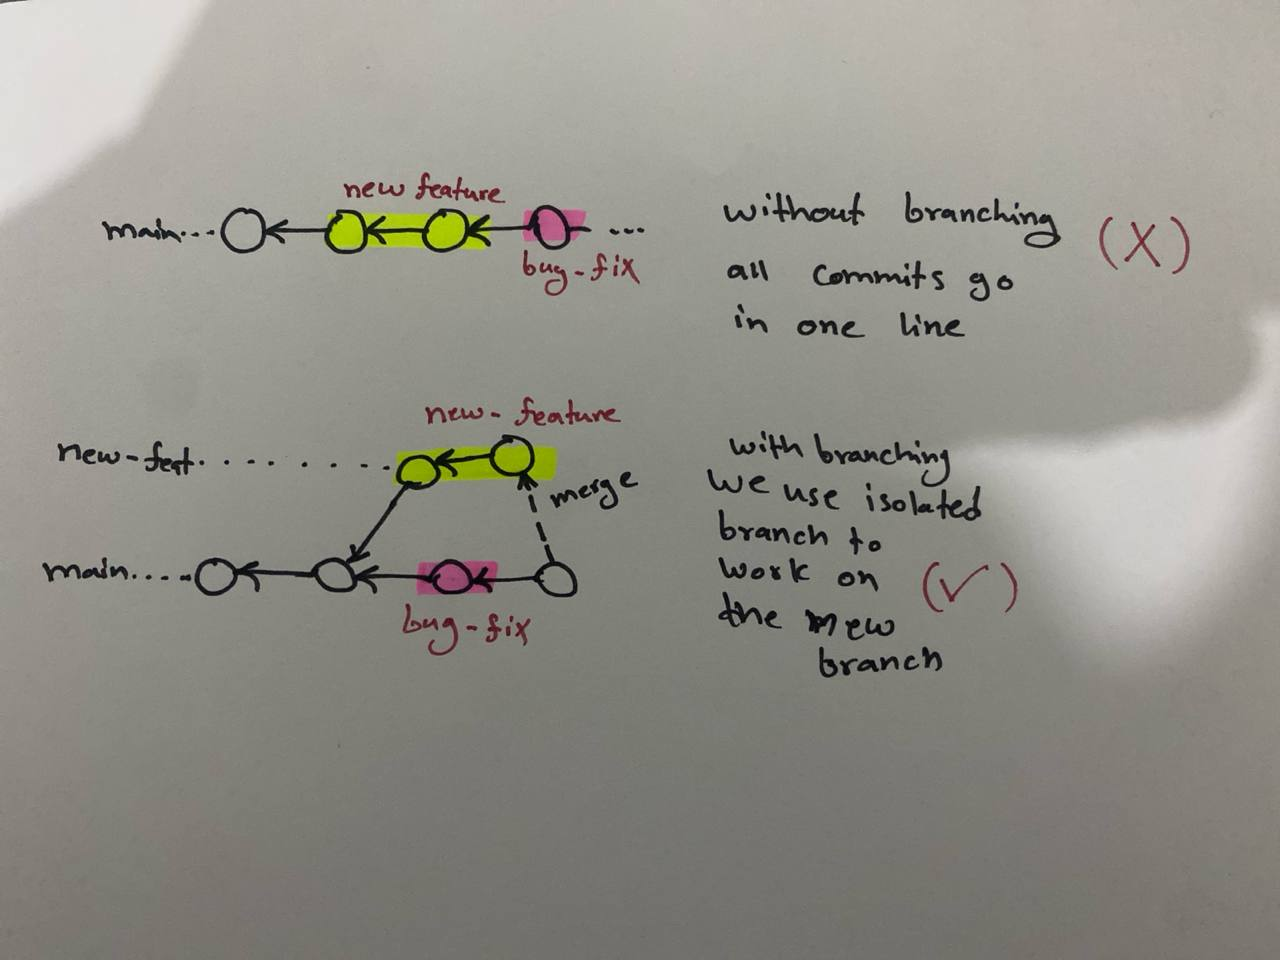 new feature
main...
...
bug-fix
without branching
all commits go
in one line
(X)
new-feature
new-feat.........
merge
main....
bug-fix
with branching
we use isolated
branch to
work on
the mew
branch
(✓)